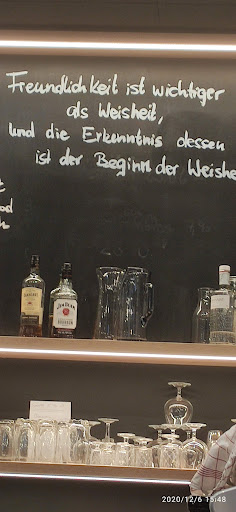 Freundlichkeit ist wichtiger
als Weisheit,
und die Erkenntnis dessen
ist der Beginn der Weishe
JIM BEAM
2020/12/6 15:48